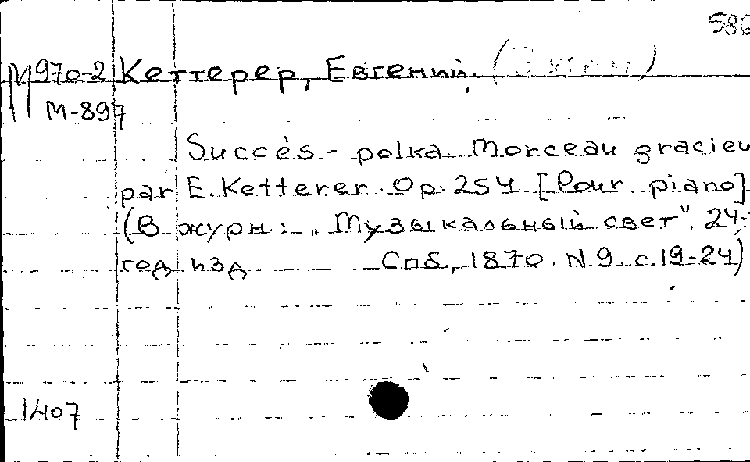 586
М970-2 Кеттерер, Евгений.
М-897
Succès - polka Morceau gracieu
par E. Ketterer. Op. 254 [Pour piano]
(В журн: „Музыкальный свет", 24-
год изд Спб, 1870. N. 9. с. 19-24)
1407